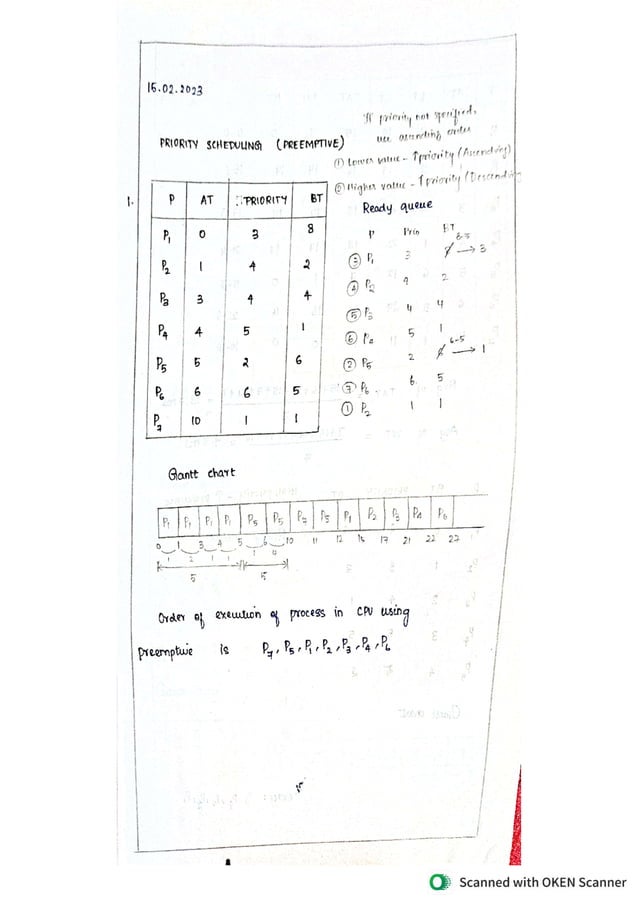 15.02.2023
If priority not specified,
use ascending order
PRIORITY SCHEDULING (PREEMPTIVE)
① Lower value - ↑priority (Ascending)
② Higher value - ↑priority (Descending
1.
P AT PRIORITY BT
P1 0 3 8
P2 1 4 2
P3 3 4 4
P4 4 5 1
P5 5 2 6
P6 6 6 5
P7 10 1 1
Ready queue
P Prio BT
8-5
③ P1 3 8 → 3
④ P2 4 2
⑤ P3 4 4
⑥ P4 5 1
6-5
② P5 2 6 → 1
⑦ P6 6 5
① P7 1 1
Gantt chart
P1 P1 P1 P1 P5 P5 P7 P5 P1 P2 P3 P4 P6
0 1 3 4 5 6 10 11 12 15 17 21 22 27
1 2 1 1 1 4
5 5
Order of execution of process in CPU using
preemptive is P7, P5, P1, P2, P3, P4, P6
Scanned with OKEN Scanner